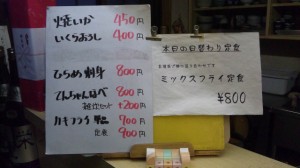 焼いか 450円
いくらおろし 400円
ひらめ刺身 800円
てんちゃんなべ 800円
雑炊セット +200円
カキフライ 単品 700円
定食 900円
本日の日替わり定食
ミックスフライ定食
¥800